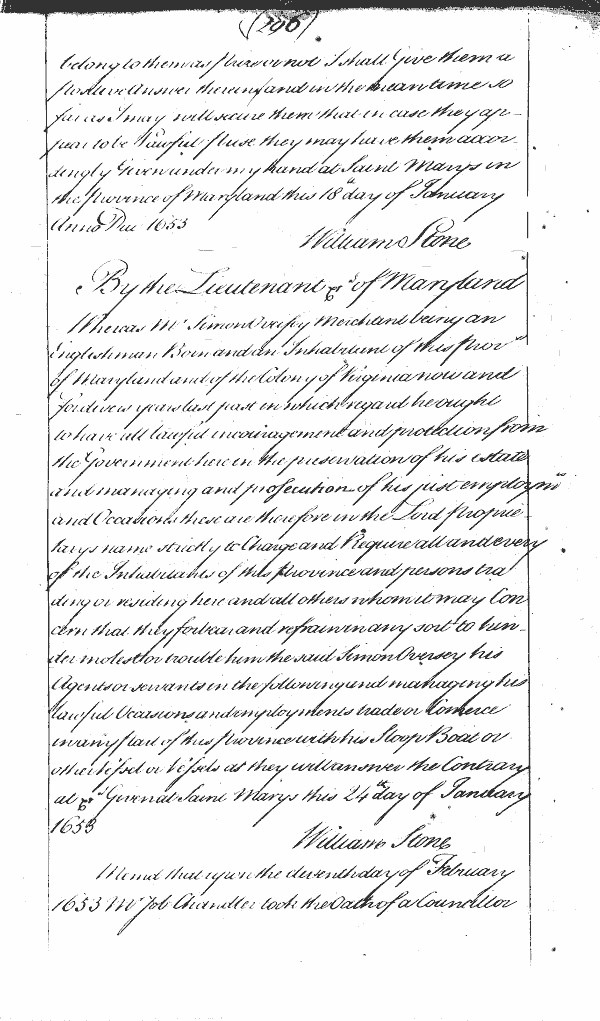 (296)
belong to them as prize or not I shall Give them a
positive Answer therein and in the mean time so
far as I may will secure them that in case they ap-
pear to be Lawful prize they may have them accor-
dingly Given under my hand at Saint Marys in
the province of Maryland this 18th day of January
Anno Dni 1653
William Stone
By the Lieutenant &c of Maryland
Whereas Mr Simon Oversey Merchant being an
Englishman Born and an Inhabitant of this Prov
of Maryland and of the Colony of Virginia now and
for divers years last past in which regard he ought
to have all lawful incouragement and protection from
the Government here in the preservation of his estate
and managing and prosecution of his just employmts
and Occasions these are therefore in the Lord Proprie-
tarys name strictly to Charge and Require all and every
of the Inhabitants of this Province and persons tra
ding or residing here and all others whom it may Con
cern that they forbear and refrain in any sort to hin-
der molest or trouble him the said Simon Oversey his
Agents or servants in the following and managing his
lawful Occasions and employments trade or Comerce
in any part of this Province with his Sloop Boat or
other Vessel or Vessels as they will answer the Contrary
at &c Given at Saint Marys this 24th day of January
1653
William Stone
Memd that upon the day of February
1653 Mr Job Chandler took the Oath of a Councillor